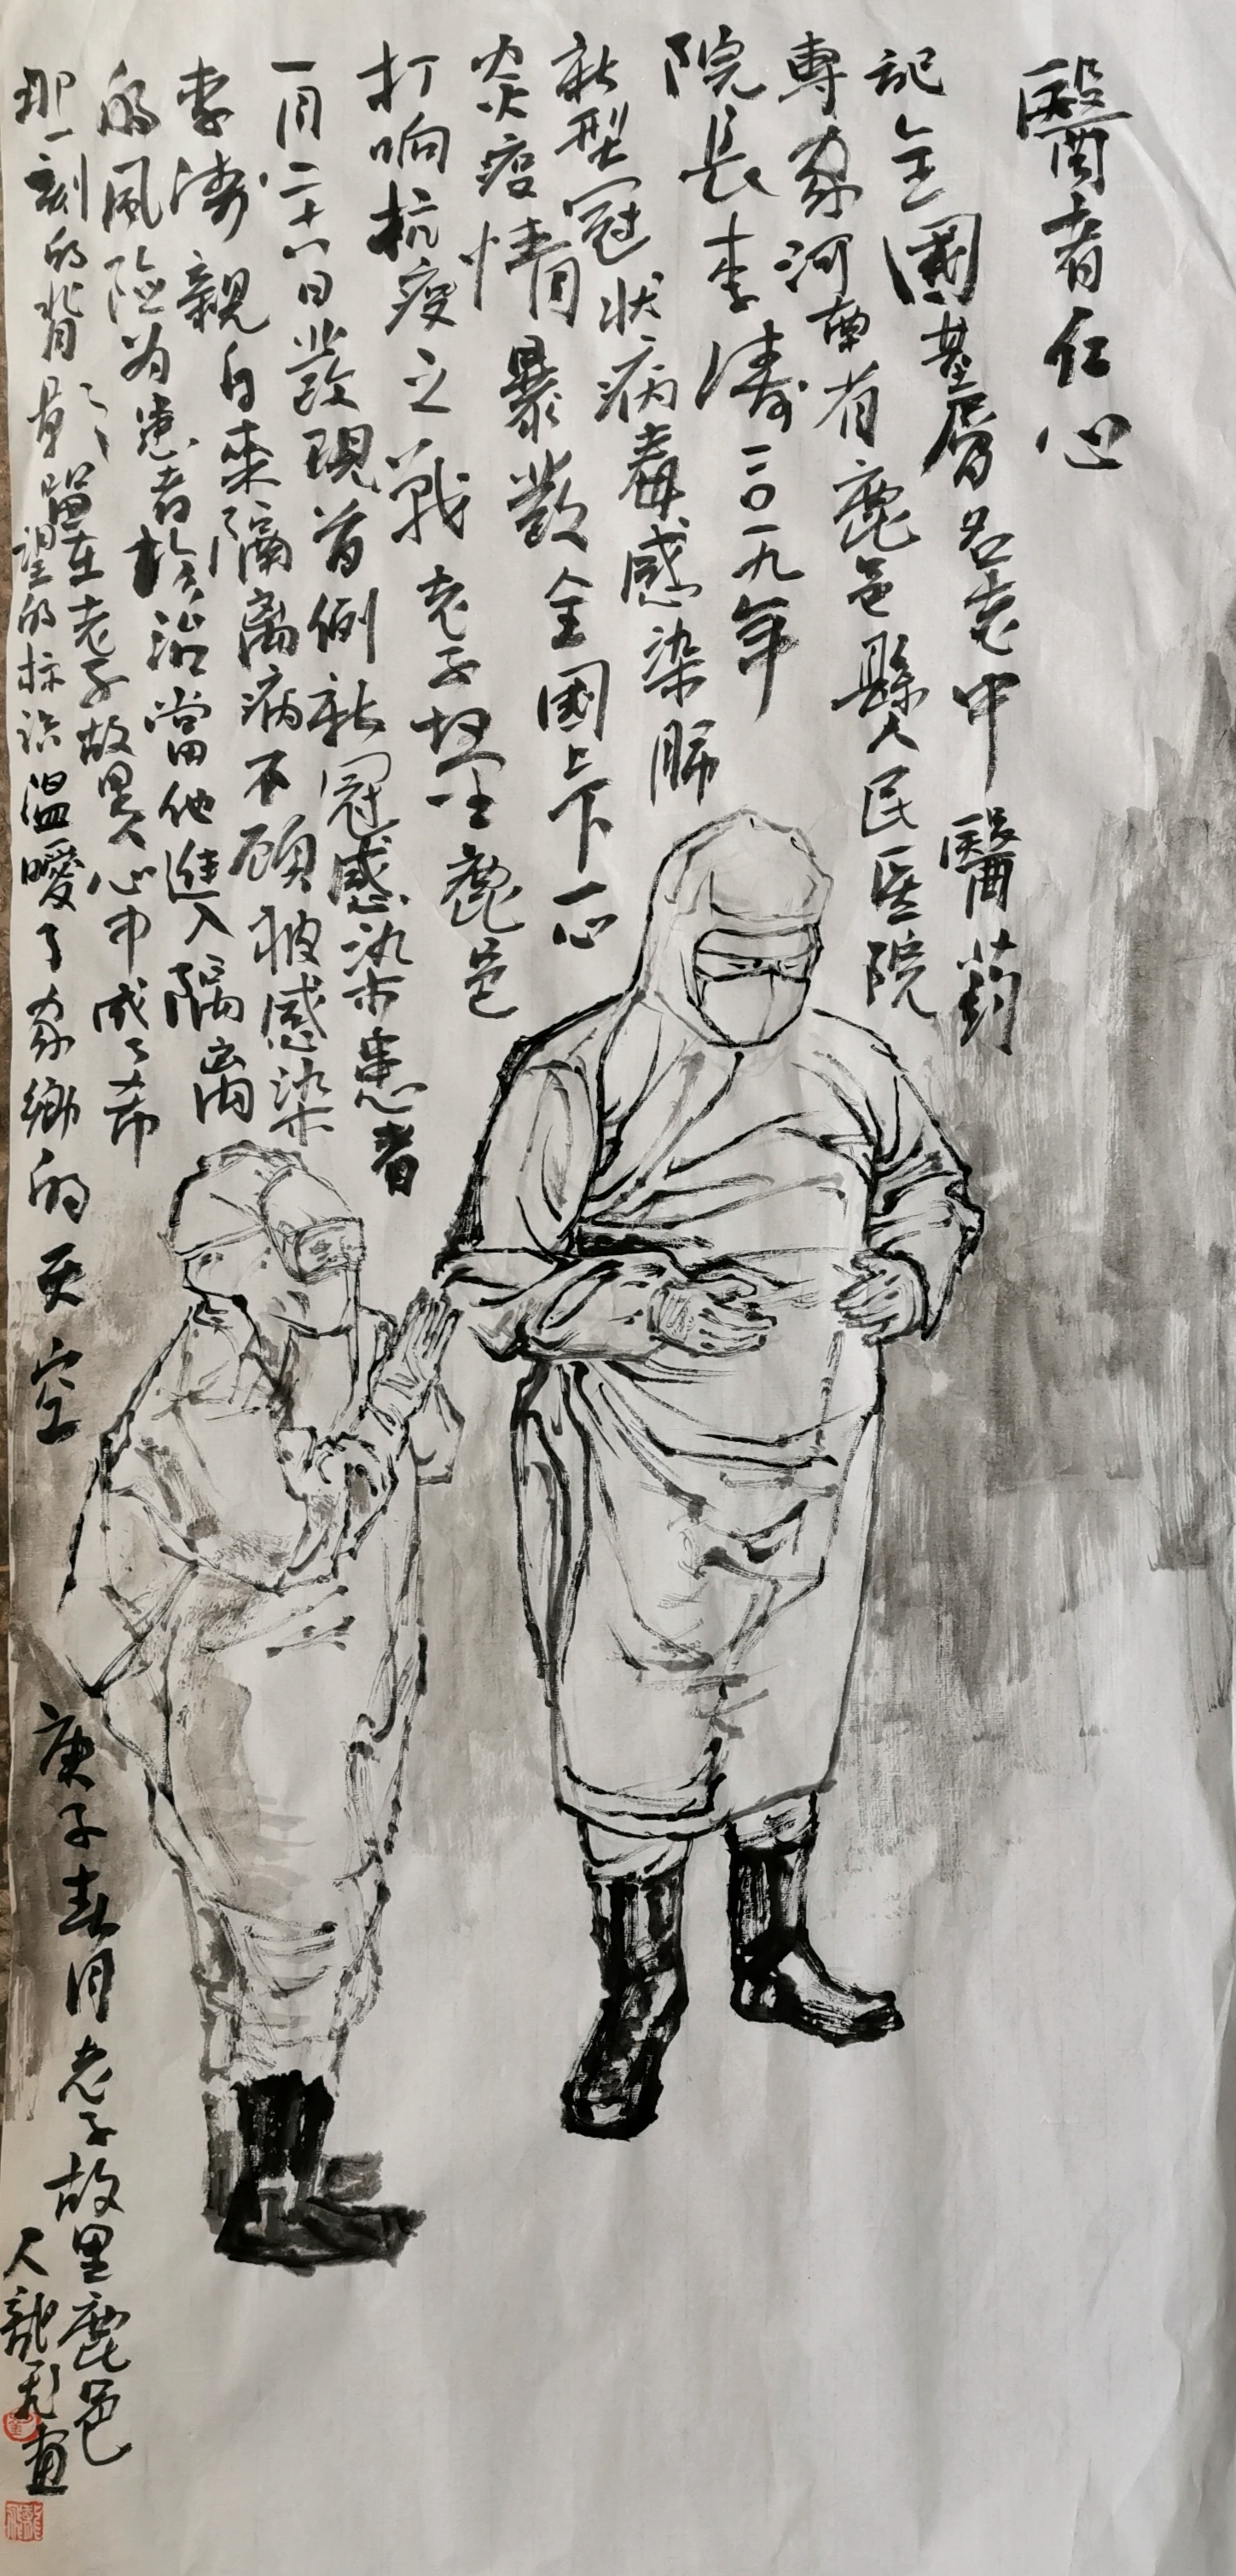 醫者仁心
記全國基層名老中醫藥
專家河南省鹿邑縣人民医院
院長李濤二〇一九年
新型冠狀病毒感染肺
炎疫情暴發全國上下一心
打响抗疫之戰老子故里鹿邑
一月二十六日發現首例新冠感染患者
李濤親自来隔离病不顧被感染
的風险为患者於治當他進入隔离
那一刻的背影留在老子故里人心中成了希
望的标识温暖了家鄉的天空
庚子春月老子故里鹿邑
人龍飛畫